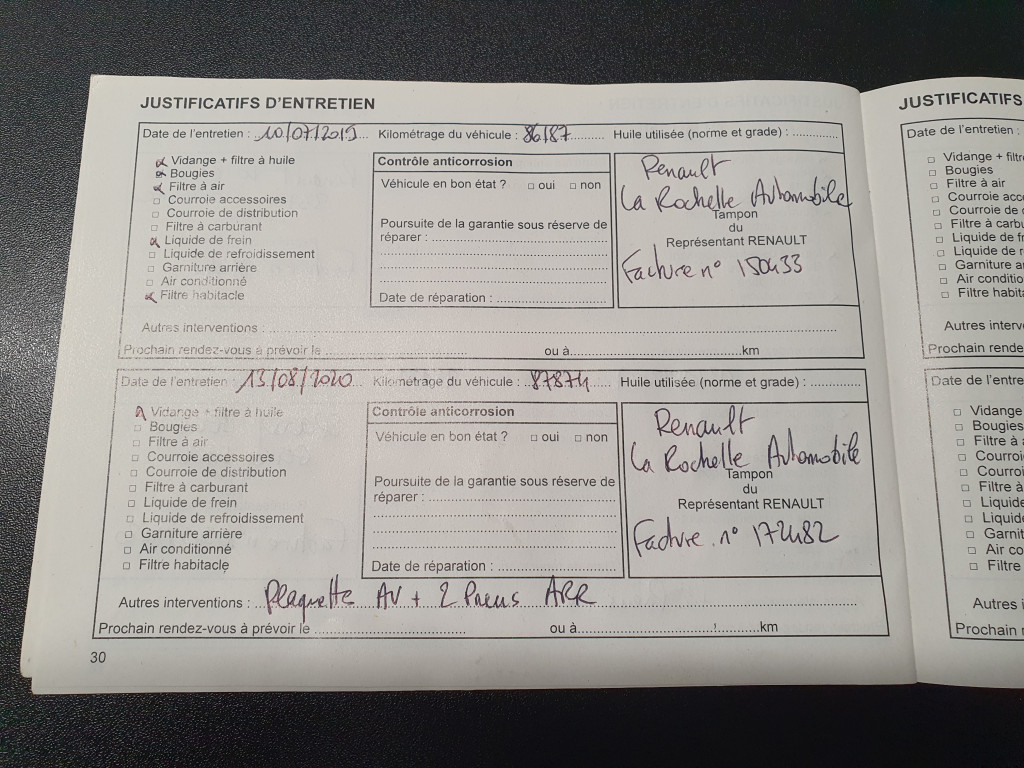 JUSTIFICATIFS D'ENTRETIEN
Date de l'entretien : 10/07/2019 Kilométrage du véhicule : 86187 Huile utilisée (norme et grade) :
Vidange + filtre à huile
Bougies
Filtre à air
Courroie accessoires
Courroie de distribution
Filtre à carburant
Liquide de frein
Liquide de refroidissement
Garniture arrière
Air conditionné
Filtre habitacle
Contrôle anticorrosion
Véhicule en bon état ? oui non
Poursuite de la garantie sous réserve de
réparer :
Date de réparation :
Renault
La Rochelle Automobile
Tampon
du
Représentant RENAULT
Facture n° 150433
Autres interventions :
Prochain rendez-vous à prévoir le ou à km
Date de l'entretien : 13/08/2020 Kilométrage du véhicule : 87874 Huile utilisée (norme et grade) :
Vidange + filtre à huile
Bougies
Filtre à air
Courroie accessoires
Courroie de distribution
Filtre à carburant
Liquide de frein
Liquide de refroidissement
Garniture arrière
Air conditionné
Filtre habitacle
Contrôle anticorrosion
Véhicule en bon état ? oui non
Poursuite de la garantie sous réserve de
réparer :
Date de réparation :
Renault
La Rochelle Automobile
Tampon
du
Représentant RENAULT
Facture n° 172482
Autres interventions : Plaquette AV + 2 Pneus ARR
Prochain rendez-vous à prévoir le ou à km
30
JUSTIFICATIFS
Date de l'entretien :
Vidange + filtr
Bougies
Filtre à air
Courroie acce
Courroie de d
Filtre à carbu
Liquide de fr
Liquide de re
Garniture ar
Air conditio
Filtre habita
Autres interven
Prochain rende
Date de l'entre
Vidange
Bougies
Filtre à a
Courroi
Courroi
Filtre à
Liquide
Liquide
Garnit
Air co
Filtre
Autres i
Prochain